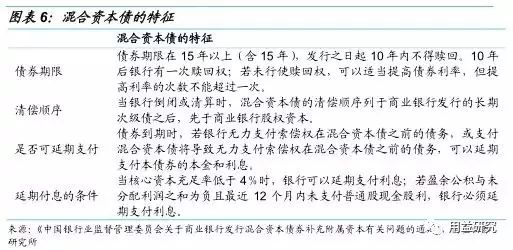 图表 6：混合资本债的特征
混合资本债的特征
债券期限在 15 年以上（含 15 年），发行之日起 10 年内不得赎回。10 年
债券期限
后银行有一次赎回权；若未行使赎回权，可以适当提高债券利率，但提
高利率的次数不能超过一次。
当银行倒闭或清算时，混合资本债的清偿顺序列于商业银行发行的长期
清偿顺序
次级债之后，先于商业银行股权资本。
债券到期时，若银行无力支付索偿权在混合资本债之前的债务，或支付
是否可延期支付
混合资本债将导致无力支付索偿权在混合资本债之前的债务，可以延期
支付本债券的本金和利息。
当核心资本充足率低于 4％时，银行可以延期支付利息；若盈余公积与未
延期付息的条件
分配利润之和为负且最近 12 个月内未支付普通股现金股利，银行必须延
期支付利息。
来源：《中国银行业监督管理委员会关于商业银行发行混合资本债券补充附属资本有关问题的通
研究所
用益研究